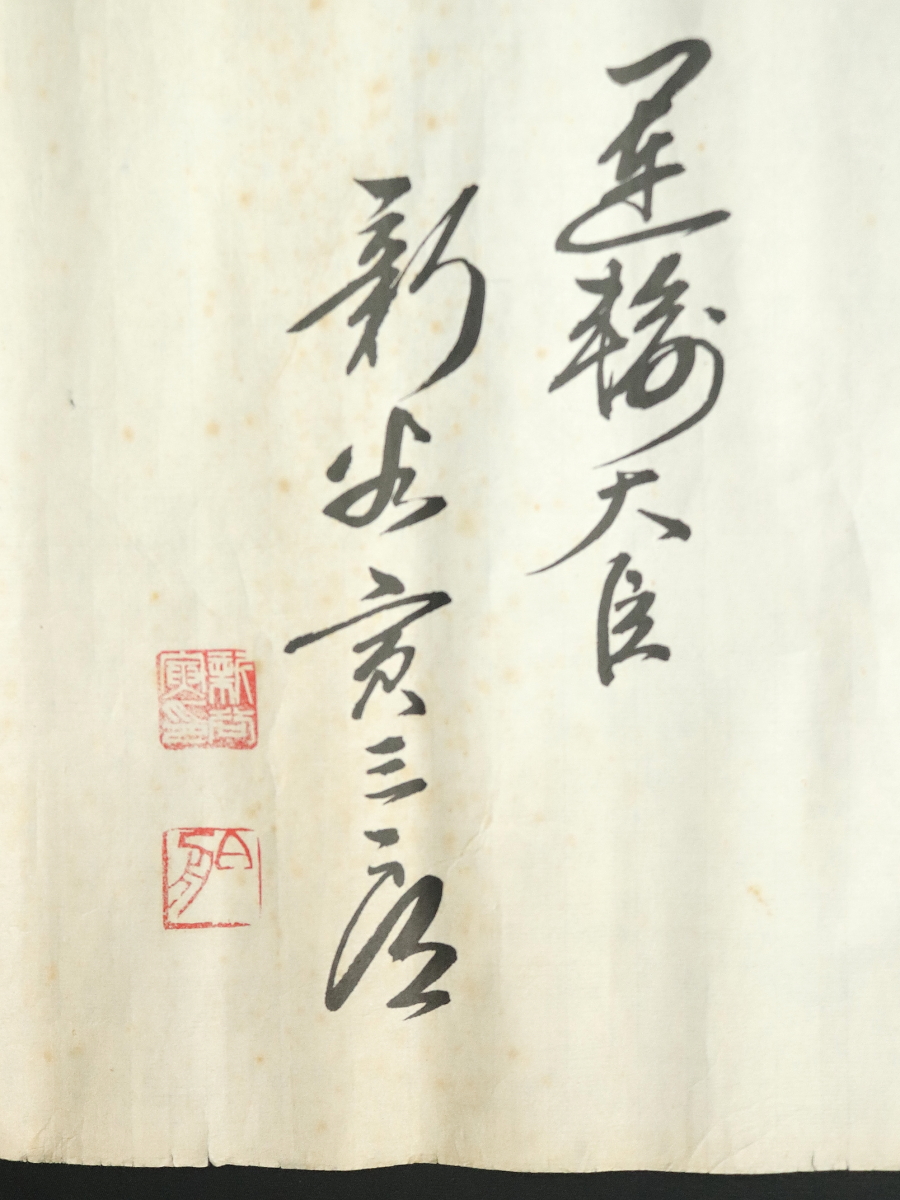 運輸大臣
新谷寅三郎
新谷
寅印